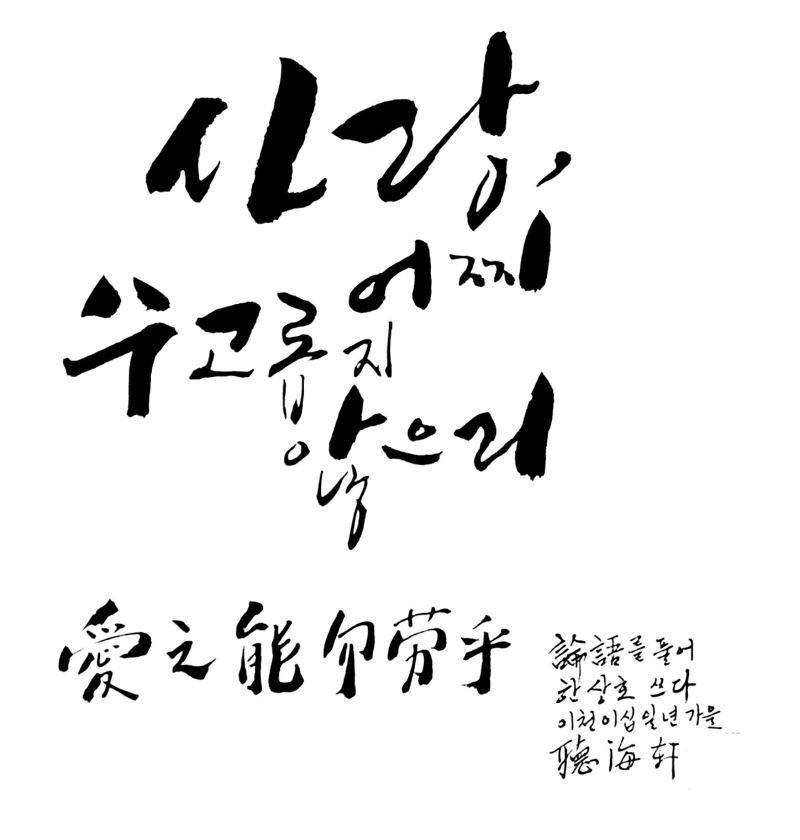 사랑,
어찌
수고롭지
않으리
愛之能勿劳乎
論語를 풀어
한상호 쓰다
이천이십일년 가을
聽海轩